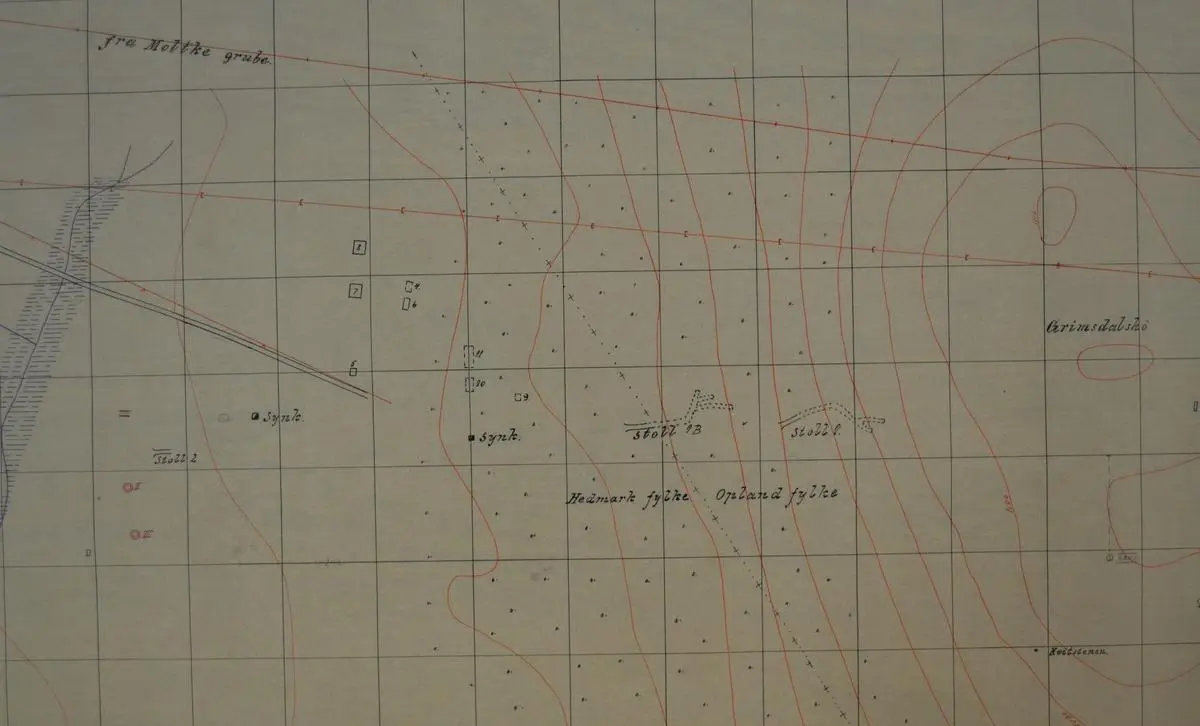 fra Moltke grube.
8
7
4.
6
5
11
10
9
synk.
synk.
stoll 2
stoll 1B
stoll
I
II
Hedmark fylke
Opland fylke
Grimsdalshö
Kvitsteinen.